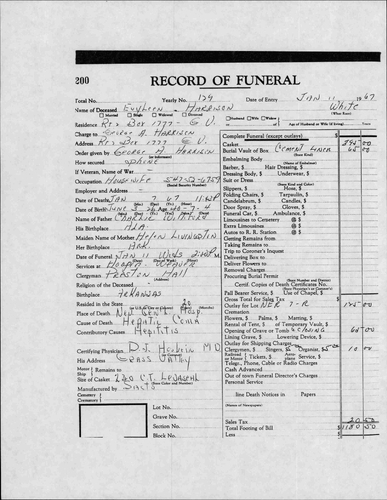 200 RECORD OF FUNERAL
Total No. Yearly No. 124 Date of Entry JAN 11 1967
Name of Deceased Evyleen HARRISON White
(What Race)
Married Single Widowed Divorced Husband Wife Widow of Age of Husband or Wife (if living) Years
Residence Rt 2 Box 1777 - G V.
Charge to George A. HARRISON
Address Rt 2 Box 1777 G V.
Order given by George A. HARRISON
How secured phone
If Veteran, Name of War
Occupation Housewife
(Social Security Number)
Employer and Address
Date of Death JAN 7 67
Date of Birth June 3
Name of Father
His Birthplace ALA
Maiden Name of Mother Helen LIVINGSTON
Her Birthplace ARK.
Date of Funeral JAN 11 Weds 2:00 P.M.
Services at Hooper & Weaver
Clergyman PRESTON HALL
Religion of the Deceased
Birthplace ARKANSAS
Resided in the State 20
Place of Death Nev. Gen'l Hosp.
Cause of Death Hepatic Coma
Contributory Causes Hepititis
Certifying Physician M.D.
His Address GRASS VALLEY
Motor Remains to
Ship
Size of Casket
(State Color and Number)
Manufactured by
Cemetery
Crematory
Lot No.
Grave No.
Section No.
Block No.
Complete Funeral (except outlays) $
Casket
Burial Vault or Box Cement Liner 65 00
(State Kind)
Embalming Body
(Name of Embalmer)
Barber, $ Hair Dressing, $
Dressing Body, $ Underwear, $
Suit or Dress
(State Kind and Color)
Slippers, $ Hose, $
Folding Chairs, $ Tarpaulin, $
Candelabrum, $ Candles, $
Door Spray, $ Gloves, $
Funeral Car, $ Ambulance, $
Limousines to Cemetery @ $
Extra Limousines @ $
Autos to R. R. Station @ $
Getting Remains from
Taking Remains to
Trip to Coroner's Inquest
Delivering Box to
Deliver Flowers to
Removal Charges
Procuring Burial Permit
(State Number and District)
Certif. Copies of Death Certificates No.
Church Service, $ Use of Chapel, $
Gross Total for Sales Tax
Outlay for Liner
Cremation
Flowers, $ Palms, $ Matting, $
Rental of Tent, $ of Temporary Vault, $
Opening of Grave or Tomb & CLOSING 65 00
Lining Grave, $ Lowering Device, $
Outlay for Shipping Charges
Clergyman, $ Singers, $ Organist, $ 5.00 10 00
Tickets, $ service, $
Telegr., Phone, Cable or Radio Charges
Cash Advanced
Out of town Funeral Director's Charges
Personal Service
line Death Notices in Papers
(Names of Newspapers)
Sales Tax
Total Footing of Bill $
Less $